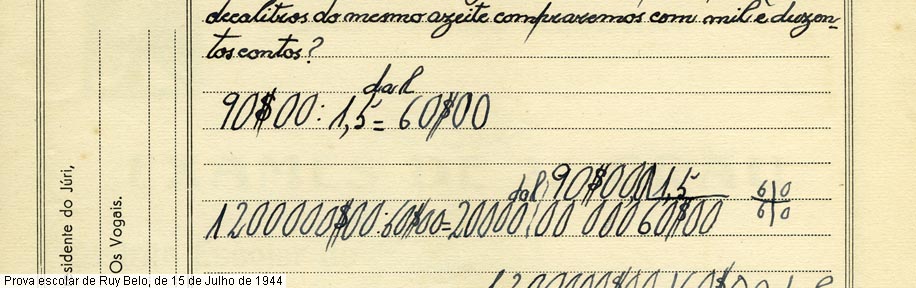 decalitros do mesmo azeite compraremos com mil e duzen-
tos contos?
dal
90$00:1,5=60$00
dal
90$00 1,5
1200000$00:60$00=20000
00 000 60$00
6 0
6 0
sidente do Júri,
Os Vogais.
Prova escolar de Ruy Belo, de 15 de Julho de 1944